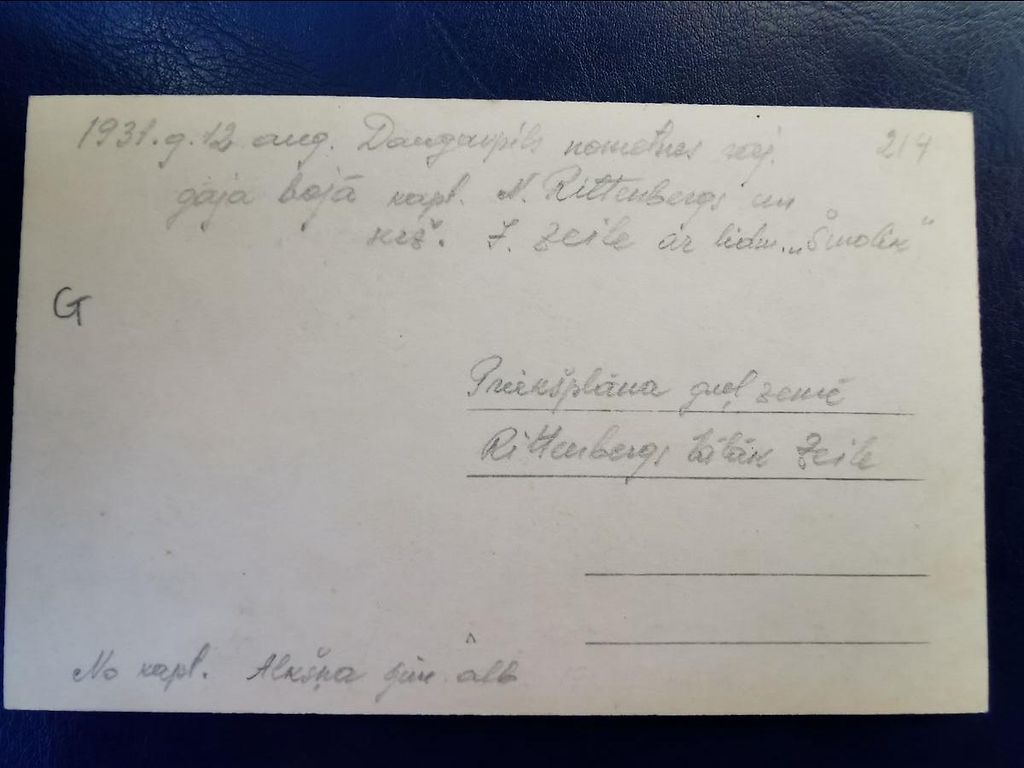 1931.g. 12 aug. Daugavpils nometnes raj. 217
gāja bojā kapt. N. Rittenbergs un
krž. J. Zeile ar lidm. „Šmolik"
G
Priekšplāna guļ zemē
Rittenbergs tālāk Zeile
No kapt. Alkšņa ģim alb